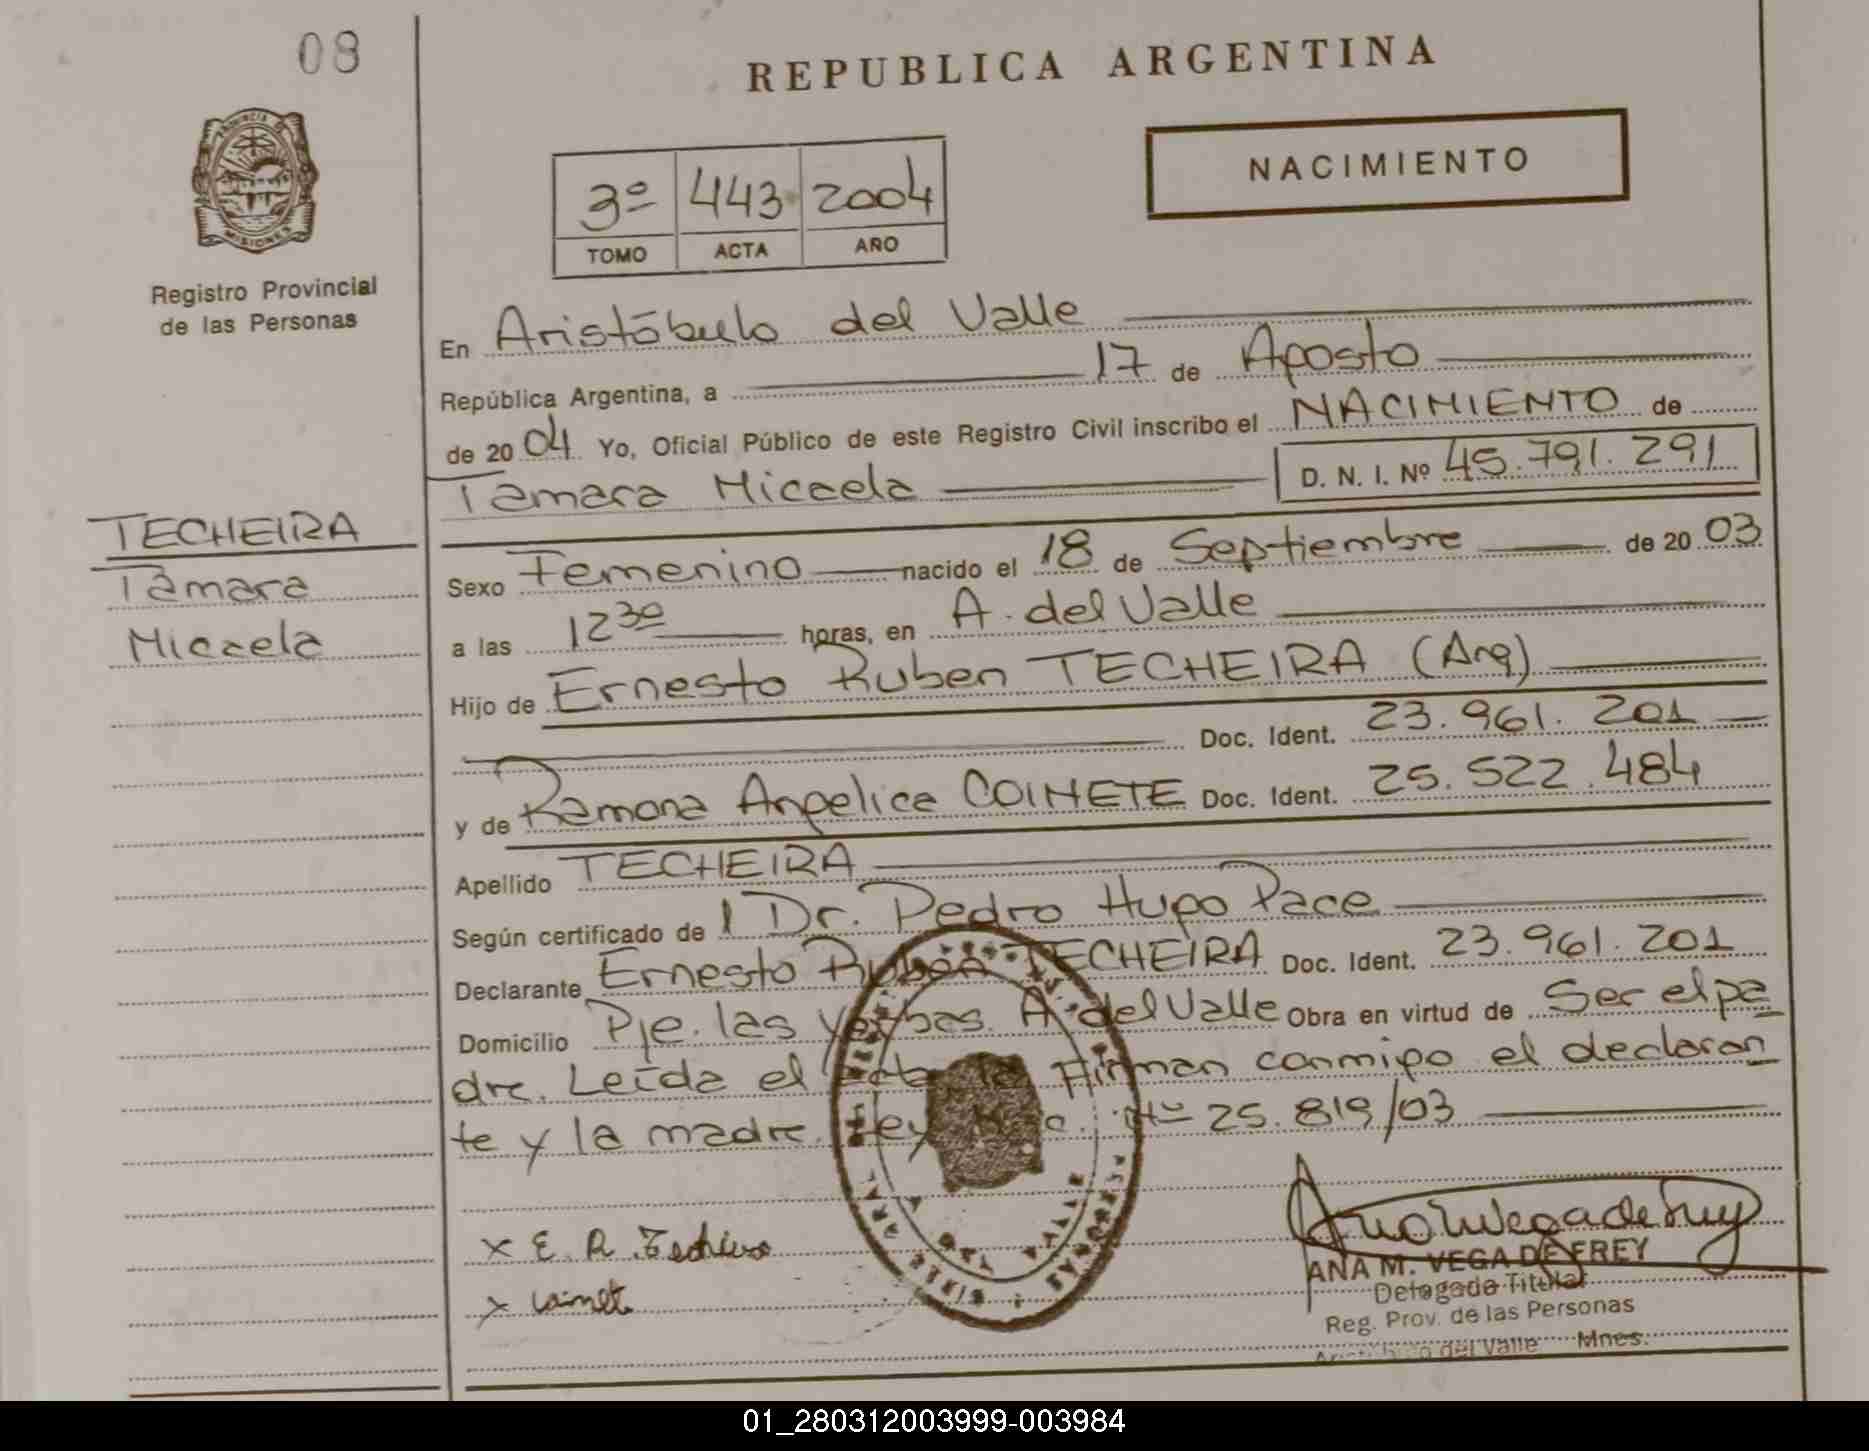 08
REPUBLICA ARGENTINA
PROVINCIA DE
MISIONES
NACIMIENTO
3º 443 2004
TOMO ACTA AÑO
Registro Provincial
de las Personas
En Aristóbulo del Valle
República Argentina, a 17 de Agosto
de 20 04 Yo, Oficial Público de este Registro Civil inscribo el NACIMIENTO de
Tamara Micaela D. N. I. Nº 45.791.291
TECHEIRA
Tamara
Micaela
Sexo Femenino nacido el 18 de Septiembre de 20 03
a las 12 30 horas, en A. del Valle
Hijo de Ernesto Ruben TECHEIRA (Arg)
Doc. Ident. 23.961.201
y de Ramona Angelica COIMETE Doc. Ident. 25.522.484
Apellido TECHEIRA
Según certificado de Dr. Pedro Hugo Pace
Declarante Ernesto Ruben TECHEIRA Doc. Ident. 23.961.201
Domicilio Pje. las Yerbas. A. del Valle Obra en virtud de Ser el pa
dre. Leída el Acta la Firman conmigo el declaran
te y la madre. Ley Nac. Nº 25.819/03
x E. R. Techeira
x
ANA M. VEGA DE FREY
Delegada Titular
Reg. Prov. de las Personas
Aristóbulo del Valle Mnes.
01_280312003999-003984